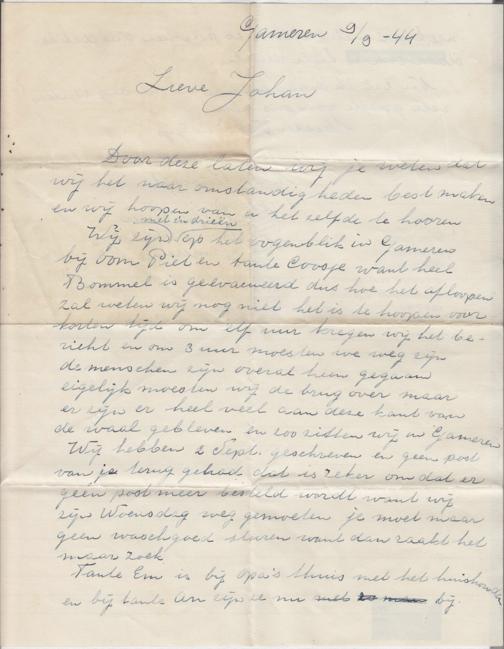 Gameren 9/9 -44
Lieve Johan
Door deze laten wij je weten dat
wij het naar omstandigheden best maken
en wij hoopen van u het zelfde te hooren
met ze drieën
Wij zijn op het oogenblik in Gameren
bij Oom Piet en tante Coosje want heel
Bommel is geëvacueerd dus hoe het afloopen
zal weten wij nog niet het is te hoopen voor
korten tijd om elf uur kregen wij het be-
richt en om 3 uur moesten we weg zijn
de menschen zijn overal heen gegaan
eigelijk moesten wij de brug over maar
er zijn er heel veel aan deze kant van
de waal gebleven en zoo zitten wij in Gameren
Wij hebben 2 Sept. geschreven en geen post
van je terug gehad dat is zeker om dat er
geen post meer besteld wordt want wij
zijn Woensdag weg gemoeten je moet maar
geen waschgoed sturen want dan raakt het
maar zoek
Tante Em is bij opa's thuis met het huishouden
en bij tante An zijn ze nu bij.